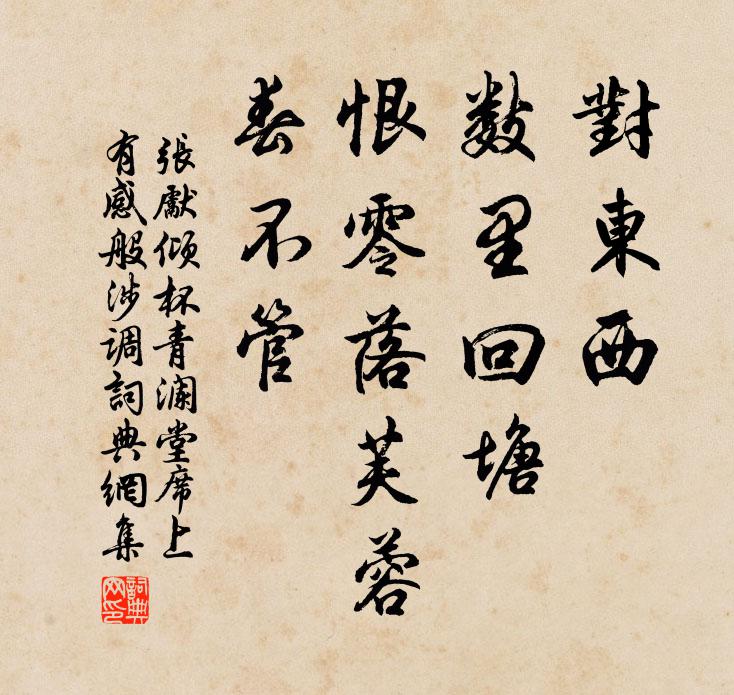 對東西
數里回塘
恨零落芙蓉
春不管
張獻傾杯青瀾堂席上
有感般涉调詞典網集
詞典